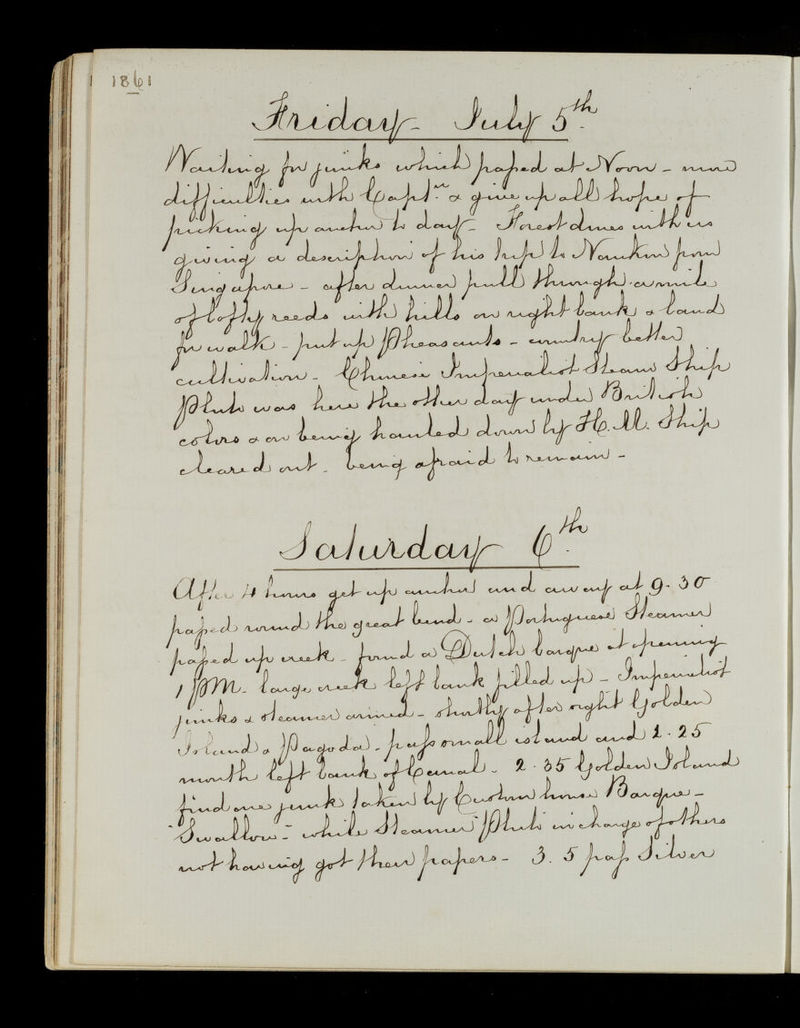 1861
Friday - July 5th
Waiting for junks which passed at Noon - more
difficulties with Captn. & give up all hope of
picking up anchor to day - Forest dines with us
giving a description of his trip to Nankin from
Singapore - after dinner pull through a mile
of lofty reeds with hills on right bank & land
for walk - put up Pheasants - country better
cultivation - Chinese Imperialist Steam Ship
Pluto was here the other day under British
colors & on being hauled down by H.M. Ship
cleared out - being afraid to remain -
Saturday 6th
After 4 hours get up anchor and away at 9.30
passed round the great bend - a Portuguese Steamer
passed up creek - found a Dutch barque at opening
1 PM. large creek left bank filled up - Imperialist
junks & steamer armed - shortly after sight Golden
Island & Pagoda - pass small island and 2.25
mouth left bank of Canal - 2.35 Golden Island
find one junk taken by Custom house Barque -
"Swallow" - while Steamer "Pluto" in charge of others
not having got their papers - 3.5 pass Silver